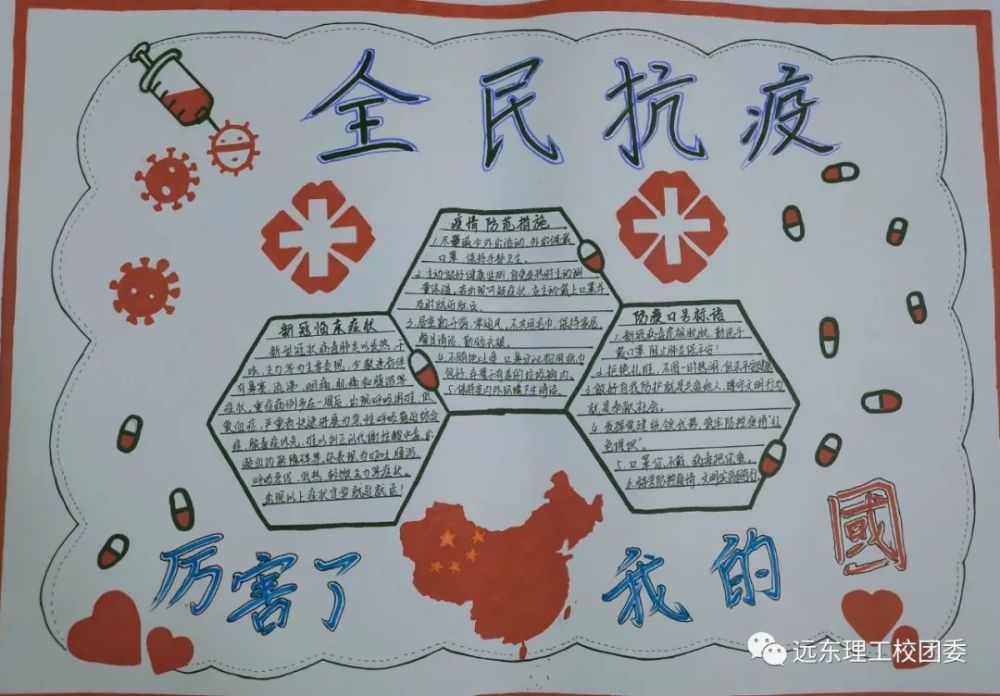 全民抗疫
疫情防范措施
1.尽量减少外出活动,外出佩戴
口罩,保持手部卫生。
2.主动做好健康监测,自觉发热时主动测
量体温,若出现可疑症状,应主动戴上口罩并
及时就近就医。
3.居室勤于扫,常通风,不共用毛巾,保持家居、
餐具清洁,勤晒衣被。
4.不随地吐痰,口鼻分泌物用纸巾
包好,弃置于有盖的垃圾箱内。
5.保持室内外环境卫生清洁。
新冠临床症状
新型冠状病毒肺炎以发热、干
咳、乏力等为主要表现,少数患者伴
有鼻塞、流涕、咽痛、肌痛和腹泻等
症状,重症病例多在一周后,出现呼吸困难、低
氧血症,严重者快速进展为急性呼吸窘迫综合
症、脓毒症休克、难以纠正的代谢性酸中毒、出
凝血功能障碍等,还表现为呕吐腹泻、
低热、轻微乏力等症状。
出现以上症状应要就近就医!
防疫口号标语
1.新冠病毒虎视眈眈,勤洗手
戴口罩,阻止肺炎保平安!
2.拒绝扎堆,不图一时热闹,但求平安健康
3.做好自我防护就是关爱他人,遵守文明行为
就是奉献社会。
4.发挥党建统领优势,筑牢防控疫情"红
色堤坝"。
5.口罩你不戴,病毒把你爱。
6.科学防控疫情,文明实践随行
厉害了
我的
國
远东理工校团委